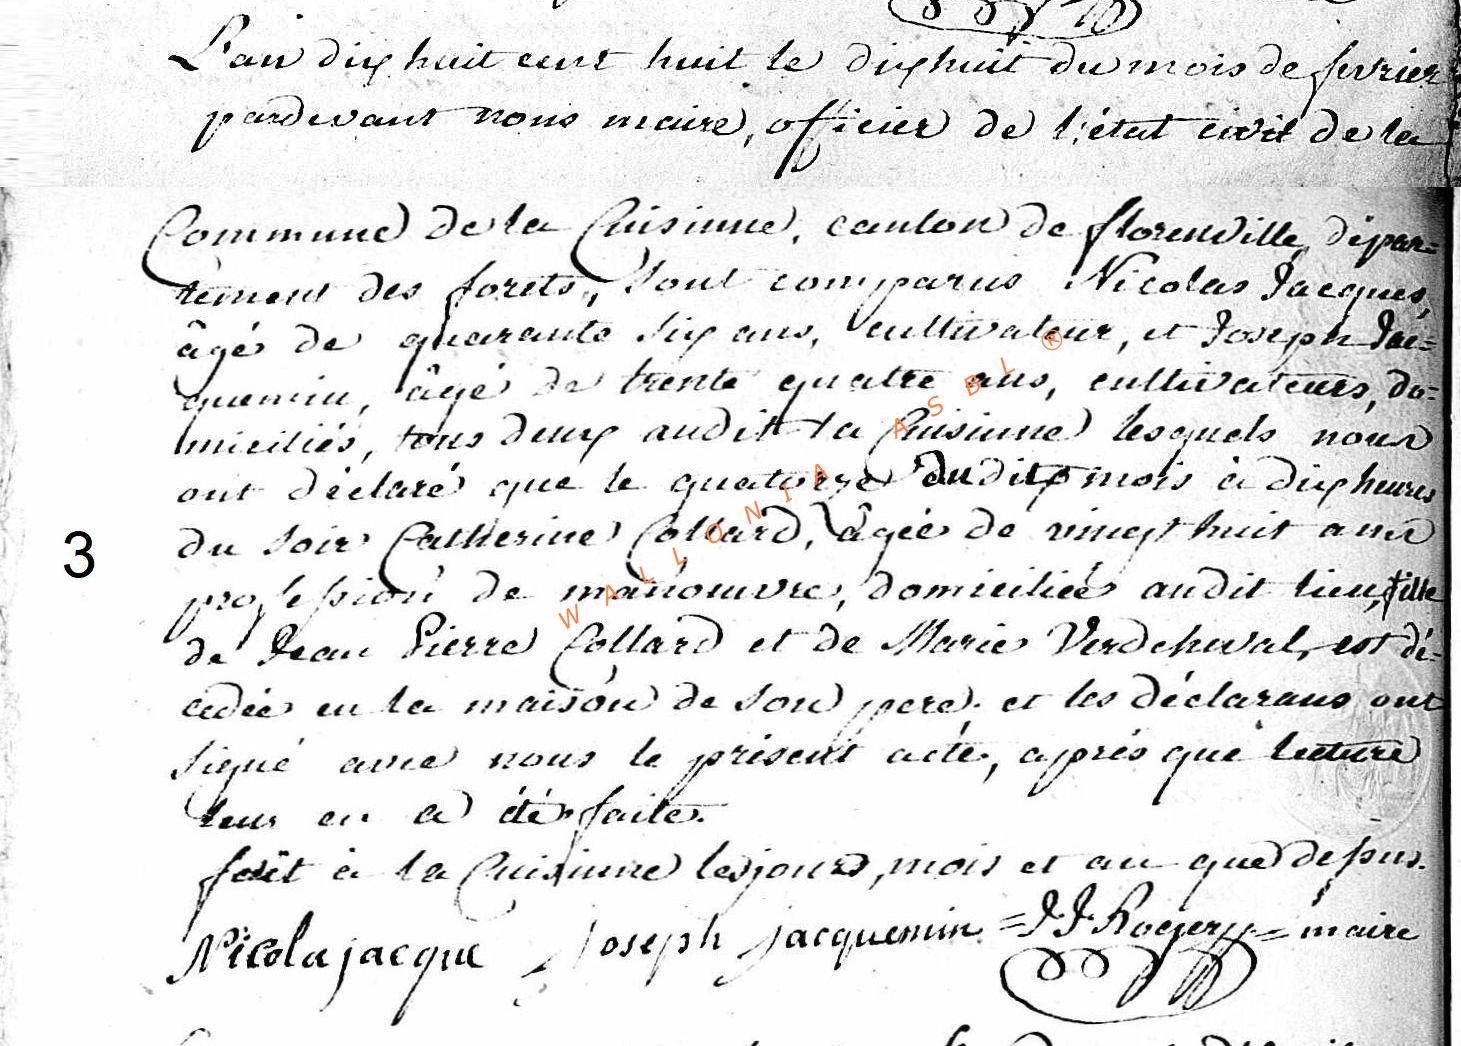 L'an dix huit cent huit le dix huit du mois de fevrier
pardevant nous maire, officier de l'état civil de la
Commune de la Cuisinne, canton de florenville, dépar=
tement des forets, sont comparus Nicolas Jacques,
âgé de quarante six ans, cultivateur, et Joseph Jac=
quemin, âgé de trente quatre ans, cultivateurs, do=
miciliés, tous deux audit la Cuisinne lesquels nous
ont déclaré que le quatorze du dit mois à dix heures
3
du soir Catherine Collard, âgée de vingt huit ans
profession de manouvre, domiciliée audit lieu, fille
de Jean Pierre Collard et de Marie Verdcheval, est dé=
cedée en la maison de son pere. et les déclarans ont
signé avec nous le présent acte, aprés que lecture
leur en a été faite.
fait à la Cuisinne les jours, mois et an que dessus.
Nicola jacque Joseph jacquemin =JJ Rogery= maire
WALLONIA ASBL ®